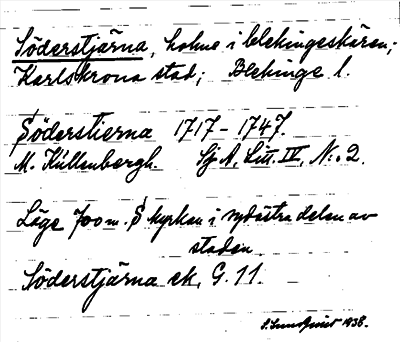 Söderstjärna, holme i blekingeskären;
Karlskrona stad; Blekinge l.
Söderstierna 1717-1747.
M. Küllenbergh. Sj A. Litt. IV, N:o 2.
Läge 700 m. S kyrkan i sydöstra delen av
staden.
Söderstjärna ek, G. 11.
S. Sundquist 1938.